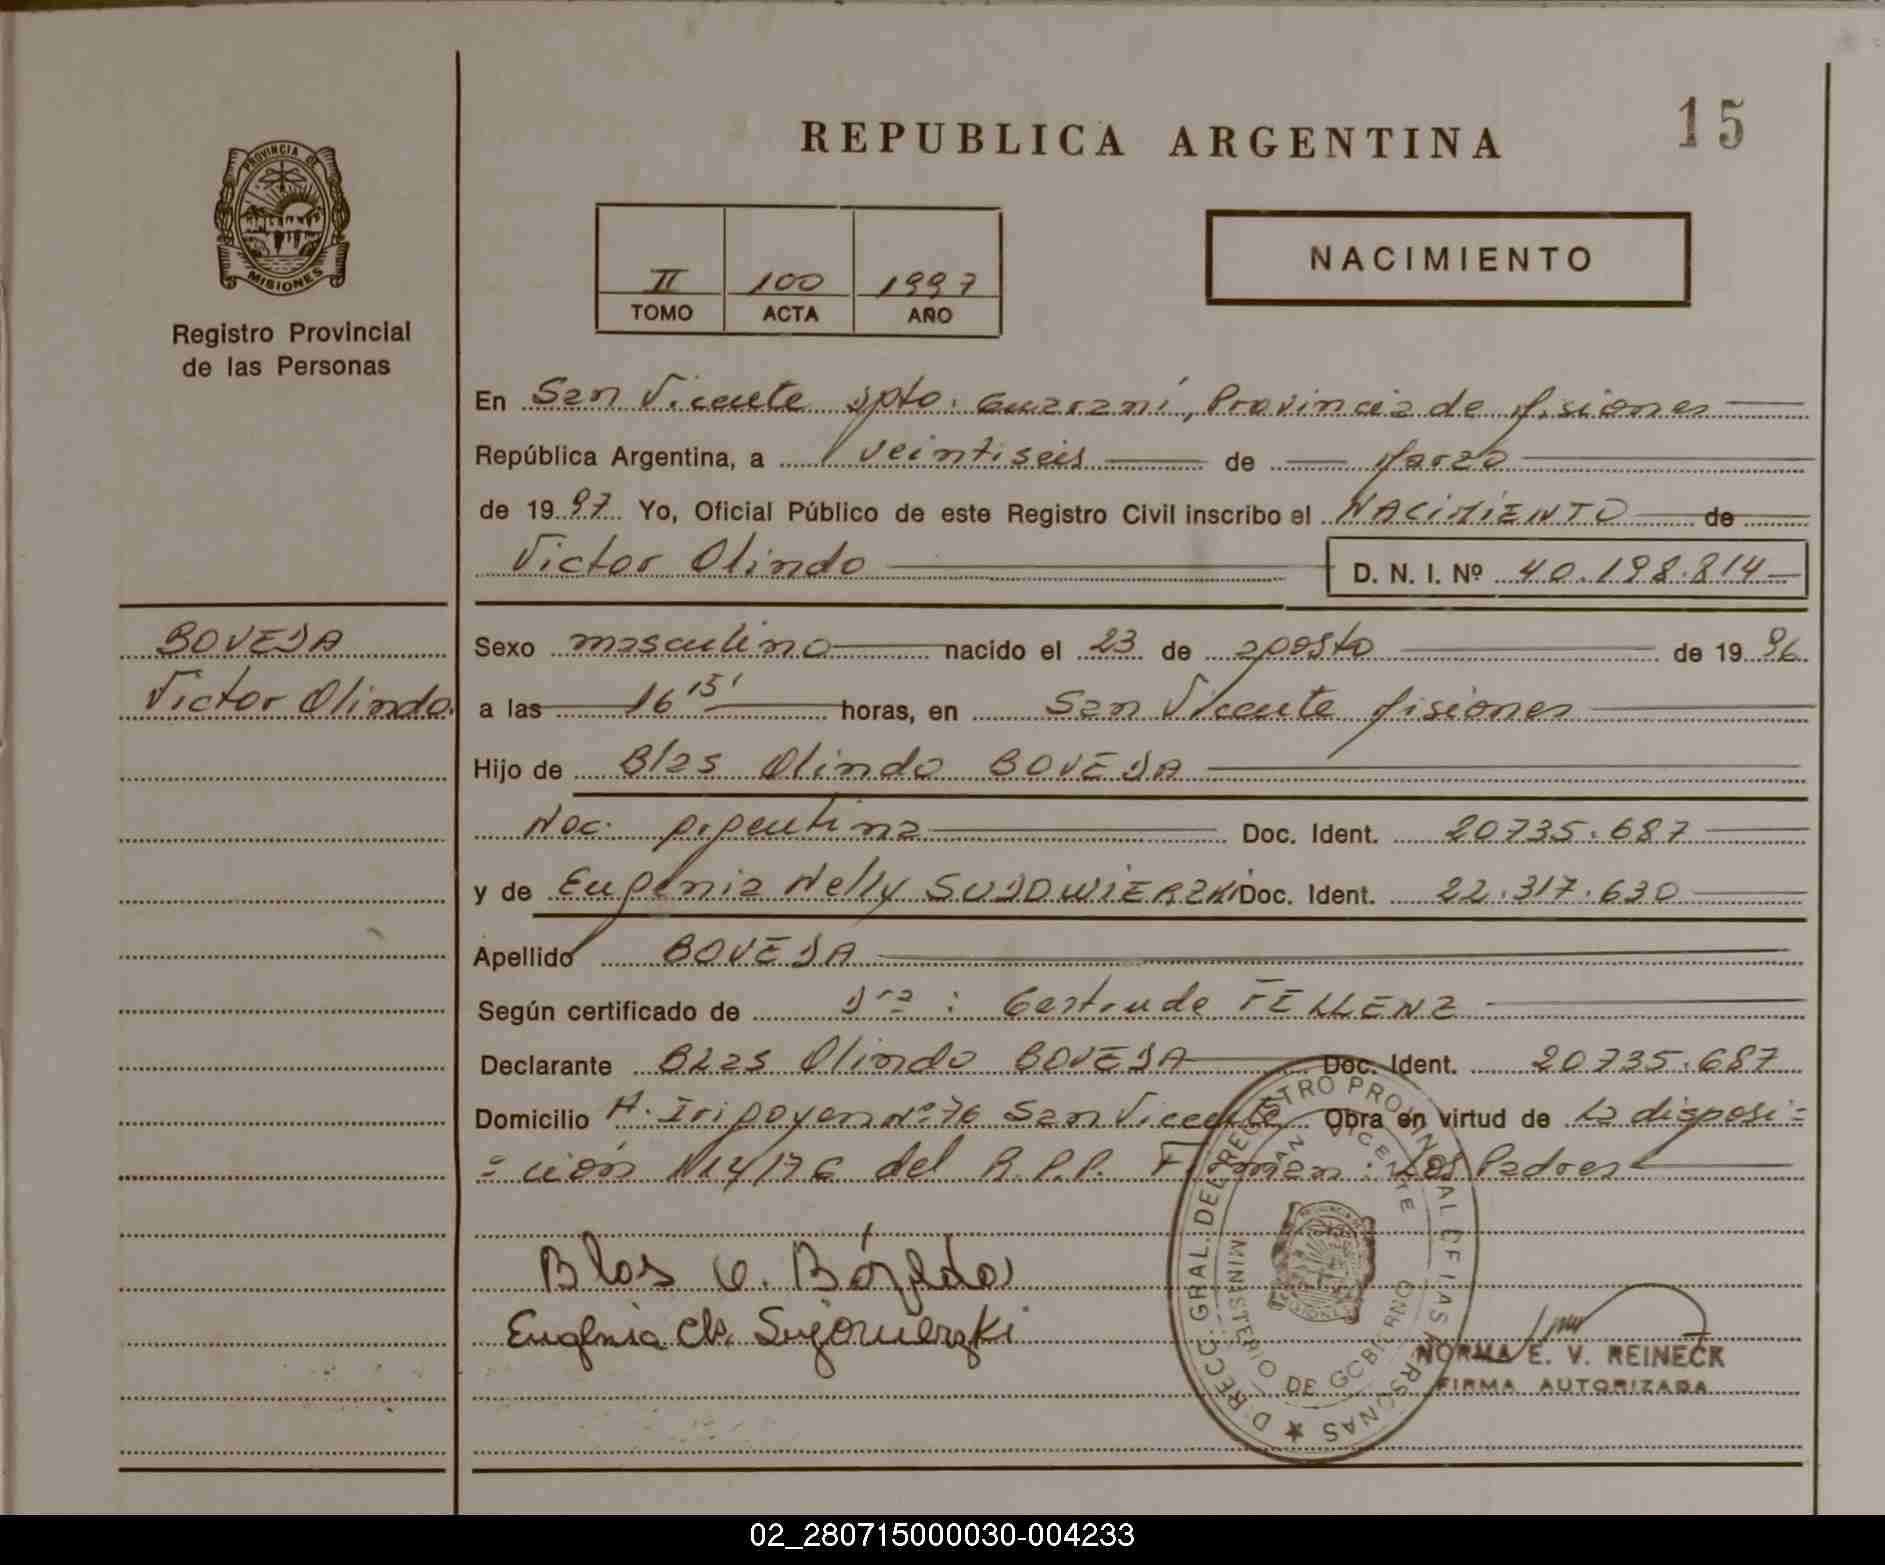 15
REPUBLICA ARGENTINA
PROVINCIA DE
MISIONES
Registro Provincial
de las Personas
II 100 1997
TOMO ACTA AÑO
NACIMIENTO
En San Vicente Dpto. Guaraní, Provincia de Misiones
República Argentina, a veintiseis de Marzo
de 1997 Yo, Oficial Público de este Registro Civil inscribo el NACIMIENTO de
Victor Olindo D. N. I. Nº 40.198.814
BOVEDA
Victor Olindo.
Sexo masculino nacido el 23 de agosto de 1996
a las 16 15' horas, en San Vicente Misiones
Hijo de Blas Olindo BOVEDA
Nac. Argentina Doc. Ident. 20735.687
y de Eugenia Nelly Doc. Ident. 22.317.630
Apellido BOVEDA
Según certificado de Dra: Gertrude FELLENZ
Declarante Blas Olindo BOVEDA Doc. Ident. 20735.687
Domicilio H. Iripoyen Nº 76 San Vicente Obra en virtud de la disposi=
=ción del R.P.P. Firman: Los Padres
Blas O. Bóveda
Eugenia
DIRECC. GRAL. DEL REGISTRO PROVINCIAL DE LAS PERSONAS
SAN VICENTE
MINISTERIO DE GOBIERNO
NORMA E. V. REINECK
FIRMA AUTORIZADA
02_280715000030-004233